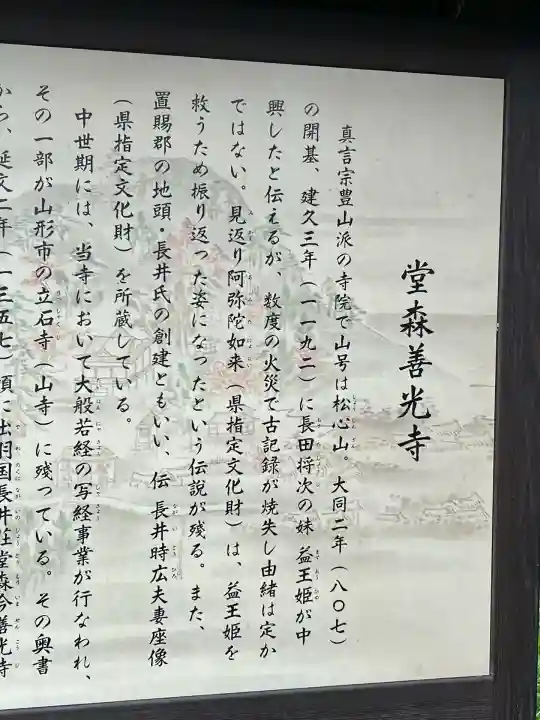 堂森善光寺
真言宗豊山派の寺院で山号は松心山。大同二年（八〇七）
の開基、建久三年（一一九二）に長田将次の妹 益王姫が中
興したと伝えるが、数度の火災で古記録が焼失し由緒は定か
ではない。見返り阿弥陀如来（県指定文化財）は、益王姫を
救うため振り返った姿になったという伝説が残る。また、
置賜郡の地頭・長井氏の創建ともいい、伝 長井時広夫妻座像
（県指定文化財）を所蔵している。
中世期には、当寺において大般若経の写経事業が行なわれ、
その一部が山形市の立石寺（山寺）に残っている。その奥書
から、延文二年（一三五七）頃に出羽国長井荘堂森今善光寺